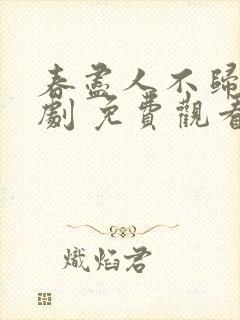 春盡人不歸
劇 免費觀看
熾焰君